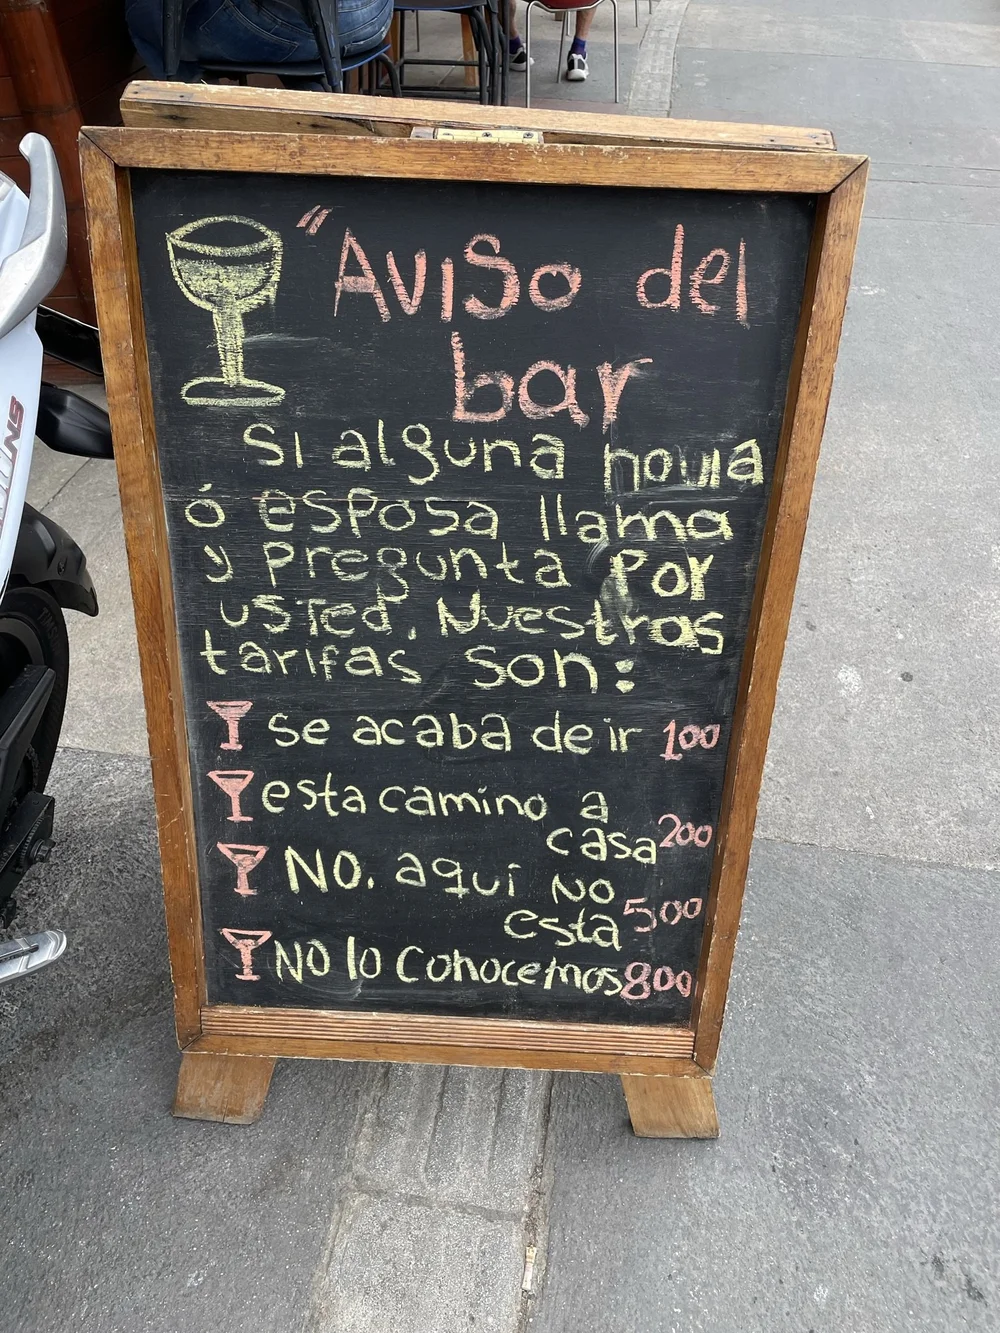 "Aviso del
bar
Si alguna novia
ó esposa llama
y pregunta por
usted. Nuestras
tarifas son:
se acaba de ir 100
esta camino a
casa 200
NO. aquí NO
esta 500
NO lo conocemos 800